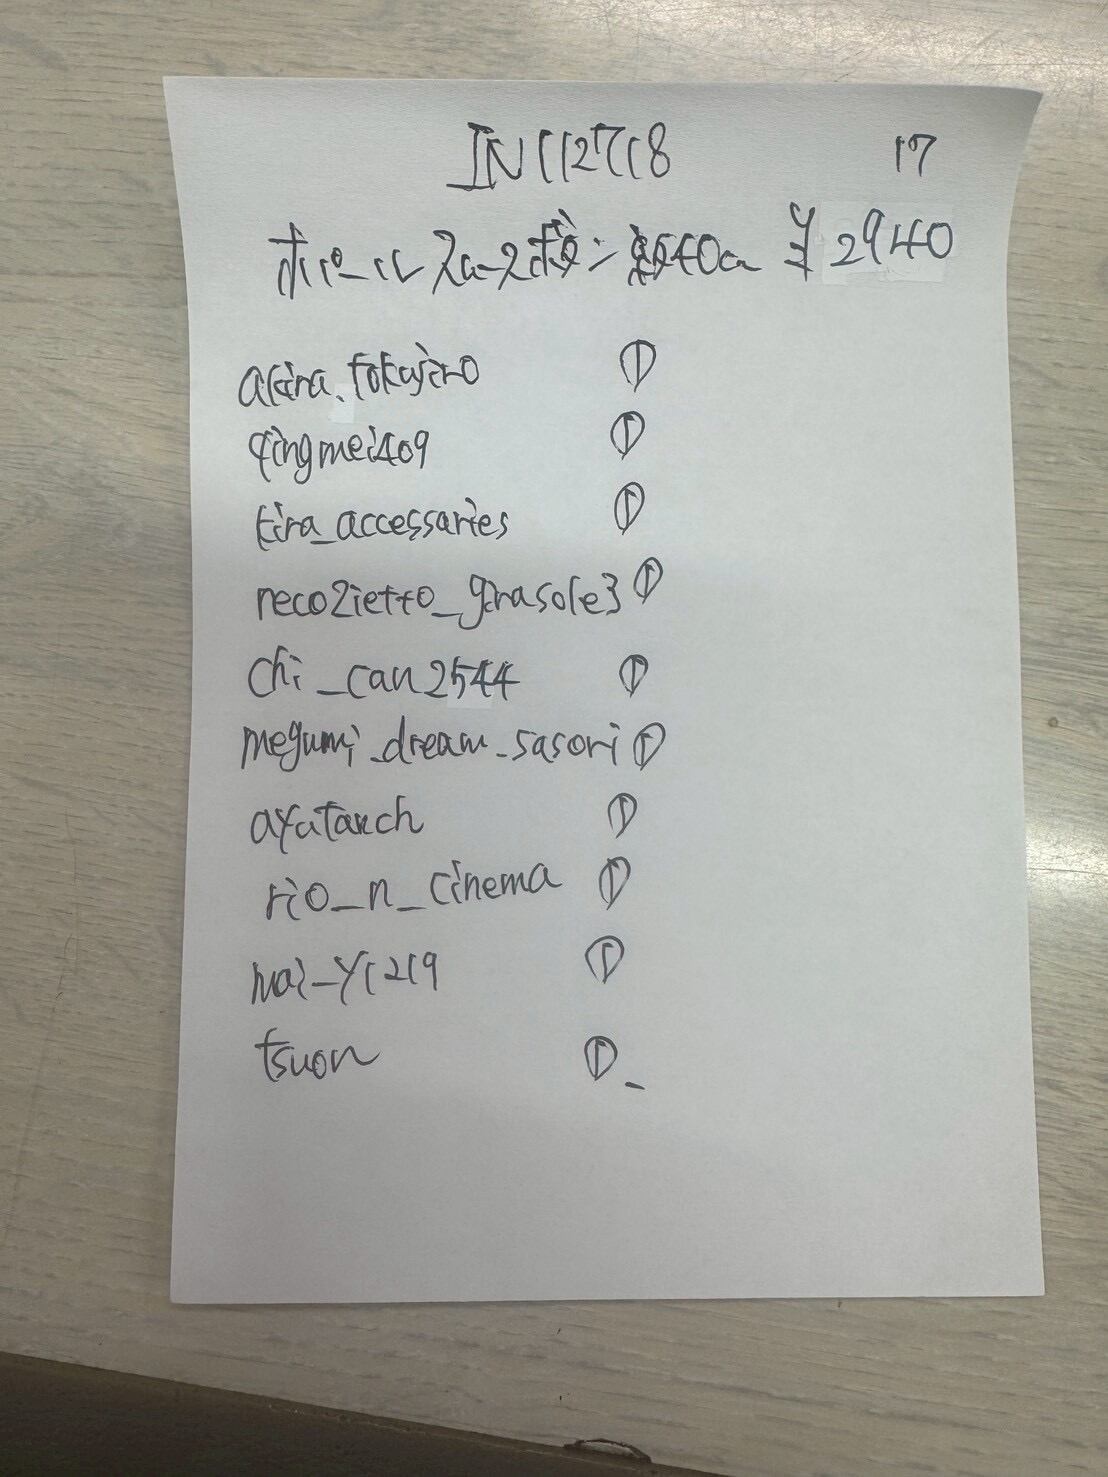 IN112718 17
¥2940
akira.tokujiro
qingmei409
kira_accessaries
neco2ietto_girasole3
chi_can2544
megumi_dream_sasori
ayutanch
rio_n_cinema
mai_y1219
tsuon